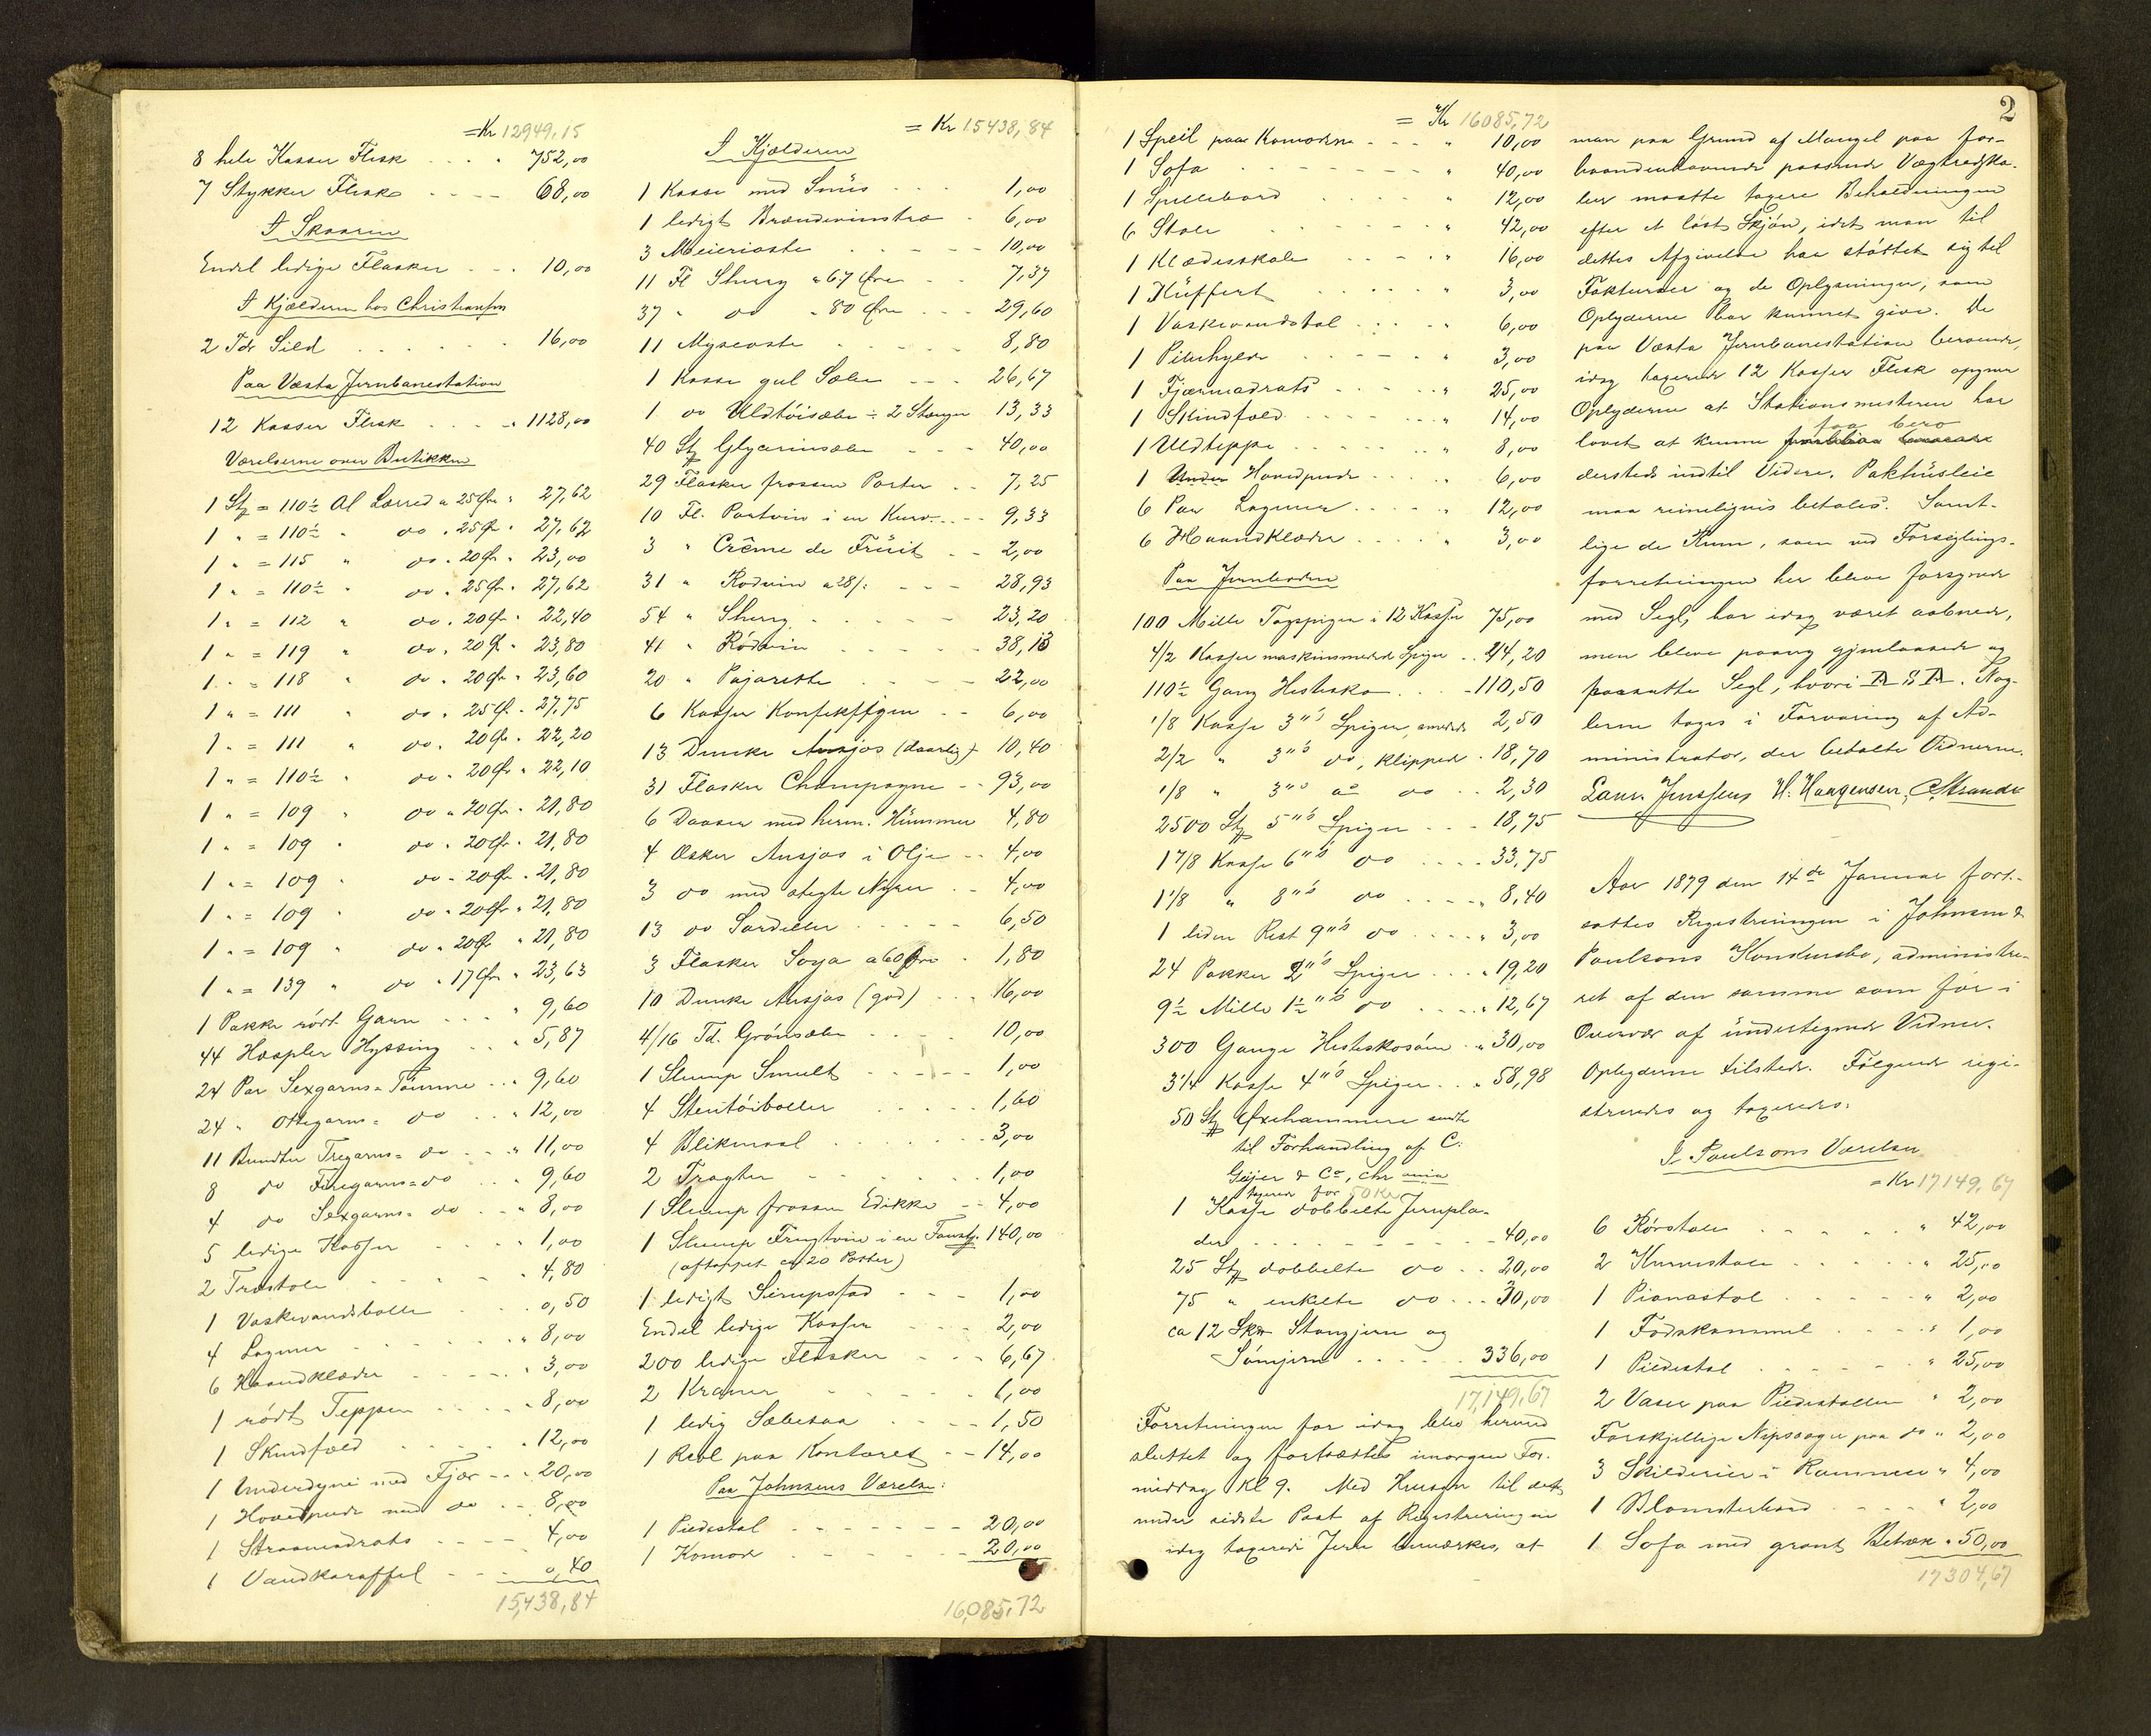 = Kr 12949,15
8 hele Kasser Flesk . . . " 752,00
7 Stykker Flesk . . . . 68,00
I Skaaren
Endel ledige Flasker . . . 10,00
I Kjælderen hos Christiansen
2 Tdr Sild . . . . . . 16,00
Paa Væsta Jernbanestation
12 Kasser Flesk . . . . " 1128,00
Værelserne over Butikken
1 Stk = 110½ Al Lærred a 25 Øre " 27,62
1 " = 110½ " do " 25 Ør " 27,62
1 " = 115 " do " 20 Ør " 23,00
1 " = 110½ " do " 25 Ør " 27,62
1 " = 112 " do " 20 Ør " 22,40
1 " = 119 " do " 20 Ør " 23,80
1 " = 118 " do " 20 Ør " 23,60
1 " = 111 " do " 25 Ør " 27,75
1 " = 111 " do " 20 Ør " 22,20
1 " = 110½ " do " 20 Ør " 22,10
1 " = 109 " do " 20 Ør " 21,80
1 " = 109 " do " 20 Ør " 21,80
1 " = 109 " do " 20 Ør " 21,80
1 " = 109 " do " 20 Ør " 21,80
1 " = 109 " do " 20 Ør " 21,80
1 " = 139 " do " 17 Ør " 23,63
1 Pakke rødt Garn . . . " 9,60
44 Haspler Hyssing . . " 5,87
24 Par Sexgarns=Tømme . . " 9,60
24 " Ottegarns= do . . " 12,00
11 Bundter Tregarns= do . . " 11,00
8 do Firegarns=do . . " 9,60
4 do Sexgarns= do . . " 8,00
5 ledige Kasser . . . " 1,00
2 Træstole . . . . " 4,80
1 Vaskevandsbolle . . . 0,50
4 Lagener . . . . " 8,00
6 Haandklæder . . . . " 3,00
1 rødt Teppen . . . . " 8,00
1 Skindfeld . . . . " 12,00
1 Underdyne med Fjær . . " 20,00
1 Hovedpude med do . . 8,00
1 Straamadrats . . . . 4,00
1 Vandkaraffel . . . 0,40
15,438,84
= Kr 15438,84
I Kjælderen
1 Kasse med Snüs . . . 1,00
1 ledigt Brændevinstræ . 6,00
3 Meierioste . . . . 10,00
11 Fl Sherry a 67 Øre . . 7,37
37 " do " 80 Øre . . . 29,60
11 Myseoste . . . . . 8,80
1 Kasse gul Sæbe . . . 26,67
1 do Uldtöisæbe ÷ 2 Stænger 13,33
40 Stk Glycerinsæbe . . . 40,00
29 Flasker frossen Porter . . 7,25
10 Fl. Portvin i en Kurv . . . 9,33
3 " Crême de Früit . . 2,00
31 " Rødvin a 28/: . . . 28,93
54 " Sherry . . . . . 23,20
41 " Rödvin . . . . . 38,13
20 " Pajarette . . . . 22,00
6 Kasser Konfektfigen . . 6,00
13 Dunke Ansjos (daarlig) . 10,40
31 Flasker Champagne . . 93,00
6 Daaser med herm. Hümmer 4,80
4 Æsker Ansjos i Olje . . 4,00
3 do med stegte Nyrer . . 4,00
13 do Sardeller . . . . . 6,50
3 Flasker Soya a 60 Øre . 1,80
10 Dunke Ansjos (god) . . . 16,00
4/16 Td. Grönsæbe . . . 10,00
1 Slump Smult . . . . 1,00
4 Stentöiboller . . . . . 1,60
4 Blikmaal . . . . . . 3,00
2 Tragter . . . . . 1,00
1 Slump frossen Edikke . . 4,00
1 Slump Frugtvin i en Fustg. 140,00
(aftappet ca 20 Potter)
1 ledigt Sirupsfad . . . 1,00
Endel ledige Kasser . . . 2,00
200 ledige Flasker . . . 6,67
2 Kraner . . . . . 1,00
1 ledig Sæbesaa . . . . 1,50
1 Reol paa Kontoret . . 14,00
Paa Johnsens Værelse:
1 Piedestal . . . . . 20,00
1 Komode . . . . . 20,00
16,085,72
2
= Kr 16085,72
1 Speil paa Komoden . . . " 10,00
1 Sofa . . . . . . " 40,00
1 Spillebord . . . . " 12,00
6 Stole . . . . . . " 42,00
1 Klædesskab . . . . " 16,00
1 Küffert . . . . . " 3,00
1 Vaskevandstol . . . . " 6,00
1 Pibehylde . . . . . " 3,00
1 Fjærmadrats . . . . " 25,00
1 Skindfeld . . . . . " 14,00
1 Uldteppe . . . . . " 8,00
1 Hovedpude . . . . " 6,00
6 Par Lagener . . . . " 12,00
6 Haandklæder . . . . " 3,00
Paa Jernboden
100 Mille Tagspiger i 12 Kasser 75,00
4/2 Kasser maskinsmedede Spiger . . 24,20
110½ Gang Hestesko . . . 110,50
1/8 Kasse 3"s Spiger, smedede 2,50
2/2 " 3"s do, klippede . 18,70
1/8 " 3"s do . . 2,30
2500 Stk 5"s Spiger . . . 18,75
17/8 Kasse 6"s do . . . . 33,75
1 1/8 " 8"s do . . . . " 8,40
1 liden Rest 9"s do . . . " 3,00
24 Pakker 2"s Spiger . . . " 19,20
9½ Mille 1½"s do . . . . " 12,67
300 Gange Hesteskosöm . " 30,00
3 1/4 Kasse 4"s Spiger . . . " 58,98
50 Stk Øxehammere sendte
til Forhandling af C.
Geijer & Co, Chr mia
taxeret for 50 Kr
1 Kasse dobbelte Jernpla-
der . . . . . . . . 40,00
25 Stk dobbelte do . . 20,00
75 " enkelte do . . . 30,00
ca 12 Sk℔ Stangjern og
Sömjern . . . . . . 336,00
17,149,67
Forretningen for idag blev hermed
sluttet og fortsættes imorgen For-
middag Kl 9. Med Hensyn til det
under sidste Post af Registreringen
idag taxerede Jern bemærkes, at
man paa Grund af Mangel paa for-
haandenværende passende Vægtredska-
ber maatte taxere Beholdningen
efter et löst Skjön, idet man til
dettes Afgivelse har støttet sig til
Fakturaer og de Oplysninger, som
Opbyderne har kunnet give. De
paa Væsta Jernbanestation beroende,
idag taxerede 12 Kasser Flesk opgiver
Opbyderne at Stationsmesteren har
faa bero
lovet at kunne
dersteds indtil Videre. Pakhüsleie
maa rimeligvis betales. Samt-
lige de Rum, som ved Forseglings-
forretningen her bleve forsynede
med Segl, har idag været aabnede,
men bleve paany gjenlaasede og
paasatte Segl, hvori . Nøg-
lerne toges i Forvaring af Ad-
ministrator, der betalte Vidnerne.
Laur. Jenssen H. Haagensen, C. Strande
Aar 1879 den 14de Januar fort-
sattes Registreringen i Johnsen &
Paulsons Konkursbo, administre-
ret af den samme som för i
Overvær af ündertegnede Vidner.
Opbyderne tilstede. Fölgende regi-
streredes og taxeredes:
I Paulsons Værelser
= Kr 17149,67
6 Rörstole . . . . . " 42,00
2 Kurvestole . . . . . " 25,00
1 Pianostol . . . . . " 2,00
1 Fodskammel . . . . " 1,00
1 Piedestal . . . . . " 25,00
2 Vaser paa Piedestallen " 2,00
Forskjellige Nipssager paa do " 2,00
3 Skilderier i Rammer " 4,00
1 Blomsterbord . . . . " 2,00
1 Sofa med grønt Betræk " 50,00
17304,67